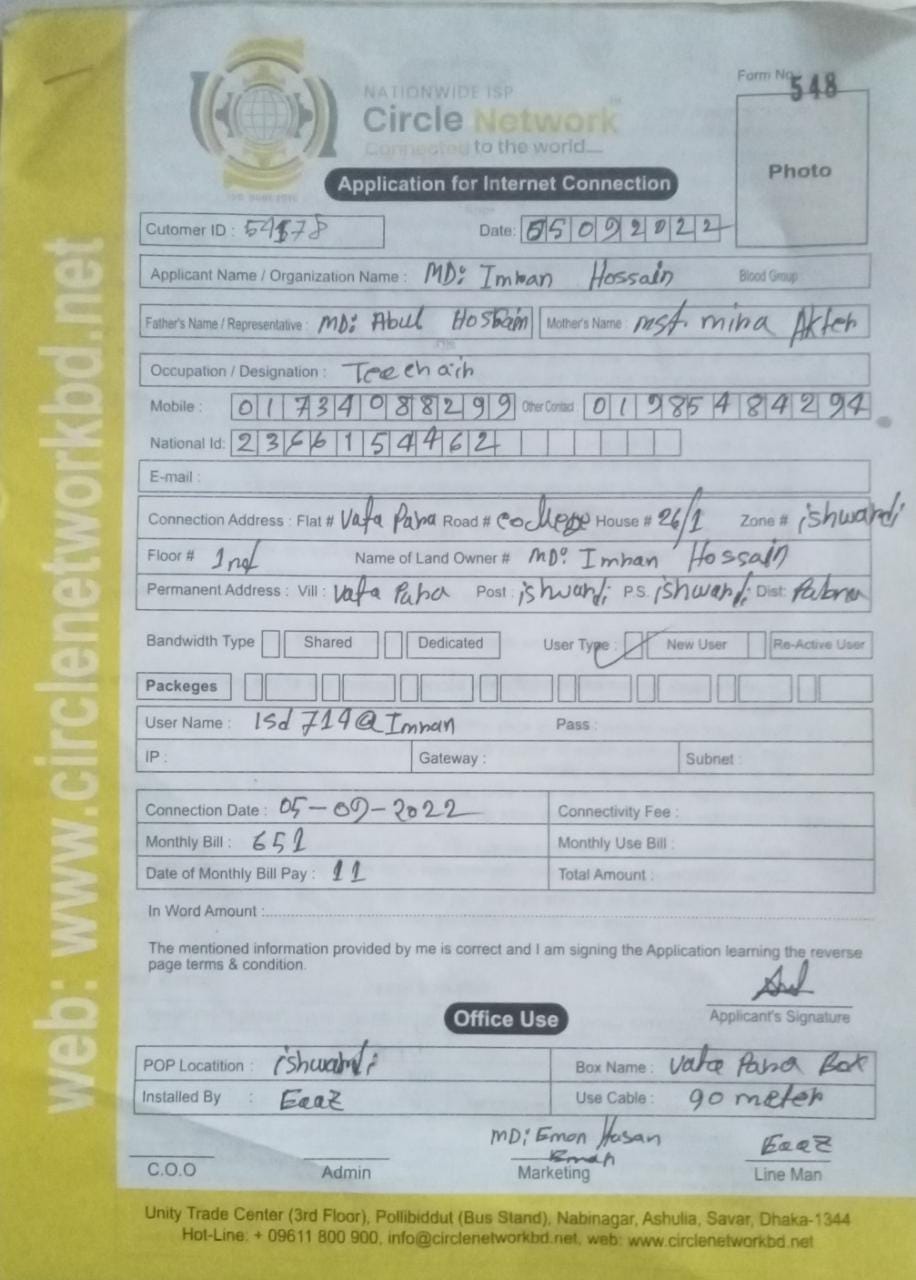 NATIONWIDE ISP
Form No. 548
Circle Network™
Connected to the world....
Photo
Application for Internet Connection
Cutomer ID : 54578
Date: 05092022
Applicant Name / Organization Name : MD: Imran Hossain Blood Group :
Father's Name / Representative : MD: Abul Hossain Mother's Name : mst. mina Akter
Occupation / Designation :
Mobile : 01734088299 Other Contact 01985484294
National Id: 2366154462
E-mail :
Connection Address : Flat # Vata Para Road # College House # 26/1 Zone # ishwardi
Floor # 1nd Name of Land Owner # MD: Imran Hossain
Permanent Address : Vill : Vata Para Post : ishwardi P.S. ishwardi Dist: Pabna
Bandwidth Type Shared Dedicated User Type : New User Re-Active User
Packeges
User Name : Isd 714@Imran Pass :
IP : Gateway : Subnet :
Connection Date : 05-09-2022 Connectivity Fee :
Monthly Bill : 651 Monthly Use Bill :
Date of Monthly Bill Pay : 11 Total Amount :
In Word Amount :
The mentioned information provided by me is correct and I am signing the Application learning the reverse
page terms & condition.
Applicant's Signature
Office Use
POP Locatition : ishwardi Box Name : Vata Para Box
Installed By : Eaaz Use Cable : 90 meter
MD: Emon Hasan
Emon Eaaz
C.O.O Admin Marketing Line Man
Unity Trade Center (3rd Floor), Pollibiddut (Bus Stand), Nabinagar, Ashulia, Savar, Dhaka-1344
Hot-Line: + 09611 800 900, info@circlenetworkbd.net, web: www.circlenetworkbd.net
web: www.circlenetworkbd.net